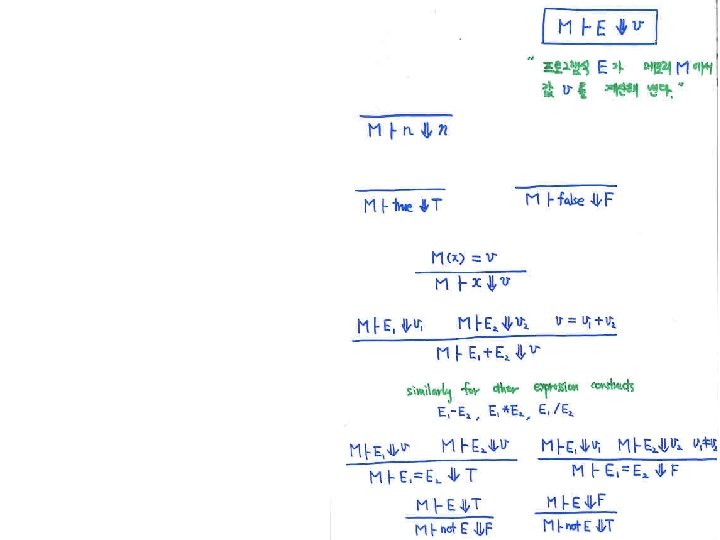 M ⊢ E ⇓ v
"프로그램식 E가 메모리 M에서
값 v를 계산해 낸다."
M ⊢ n ⇓ n
M ⊢ true ⇓ T    M ⊢ false ⇓ F
M(x) = v
M ⊢ x ⇓ v
M ⊢ E₁ ⇓ v₁    M ⊢ E₂ ⇓ v₂    v = v₁ + v₂
M ⊢ E₁ + E₂ ⇓ v
similarly for other expression constructs
E₁-E₂, E₁*E₂, E₁/E₂
M ⊢ E₁ ⇓ v    M ⊢ E₂ ⇓ v    M ⊢ E₁ ⇓ v₁    M ⊢ E₂ ⇓ v₂    v₁≠v₂
M ⊢ E₁ = E₂ ⇓ T    M ⊢ E₁ = E₂ ⇓ F
M ⊢ E ⇓ T    M ⊢ E ⇓ F
M ⊢ not E ⇓ F    M ⊢ not E ⇓ T